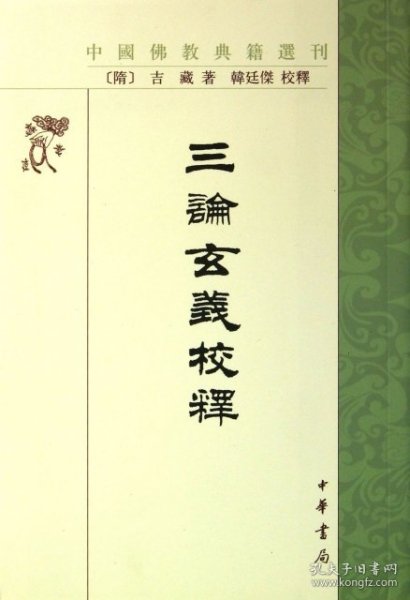 中國佛教典籍選刊
〔隋〕吉藏著 韓廷傑校釋
三論玄義校釋
中華書局
孔夫子旧书网
www.kongfz.com